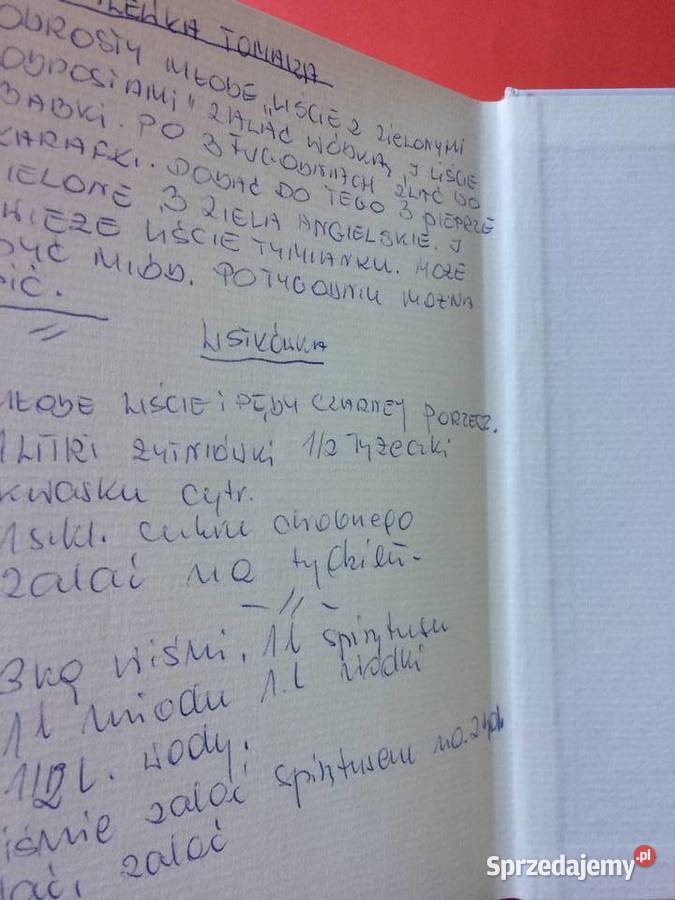 TOMASZA
ODROSTY MŁODE „LIŚCIE Z ZIELONYMI
ODROSTAMI" ZALAĆ WÓDKĄ, I LIŚCIE
BABKI. PO 3 TYGODNIACH ZLAĆ DO
KARAFKI. DODAĆ DO TEGO 3 PIEPRZE
IELONE 3 ZIELA ANGIELSKIE. I
WIEŻE LIŚCIE TYMIANKU. MOŻE
BYĆ MIÓD. PO TYGODNIU MOŻNA
PIĆ.
LISTKÓWKA
MŁODE LIŚCIE I PĘDY CZARNEJ PORZECZ.
1 LITR ŻYTNIÓWKI 1/2 ŁYŻECZKI
KWASKU cytr.
1 szkl. cukru drobnego
zalać na tydzień-
3 kg wiśni, 1 l spirytusu
1 l miodu 1 l wódki
1/2 l. wody.
iśnie zalać spirytusem na 2 tyg
lać, zalać
Sprzedajemy.pl